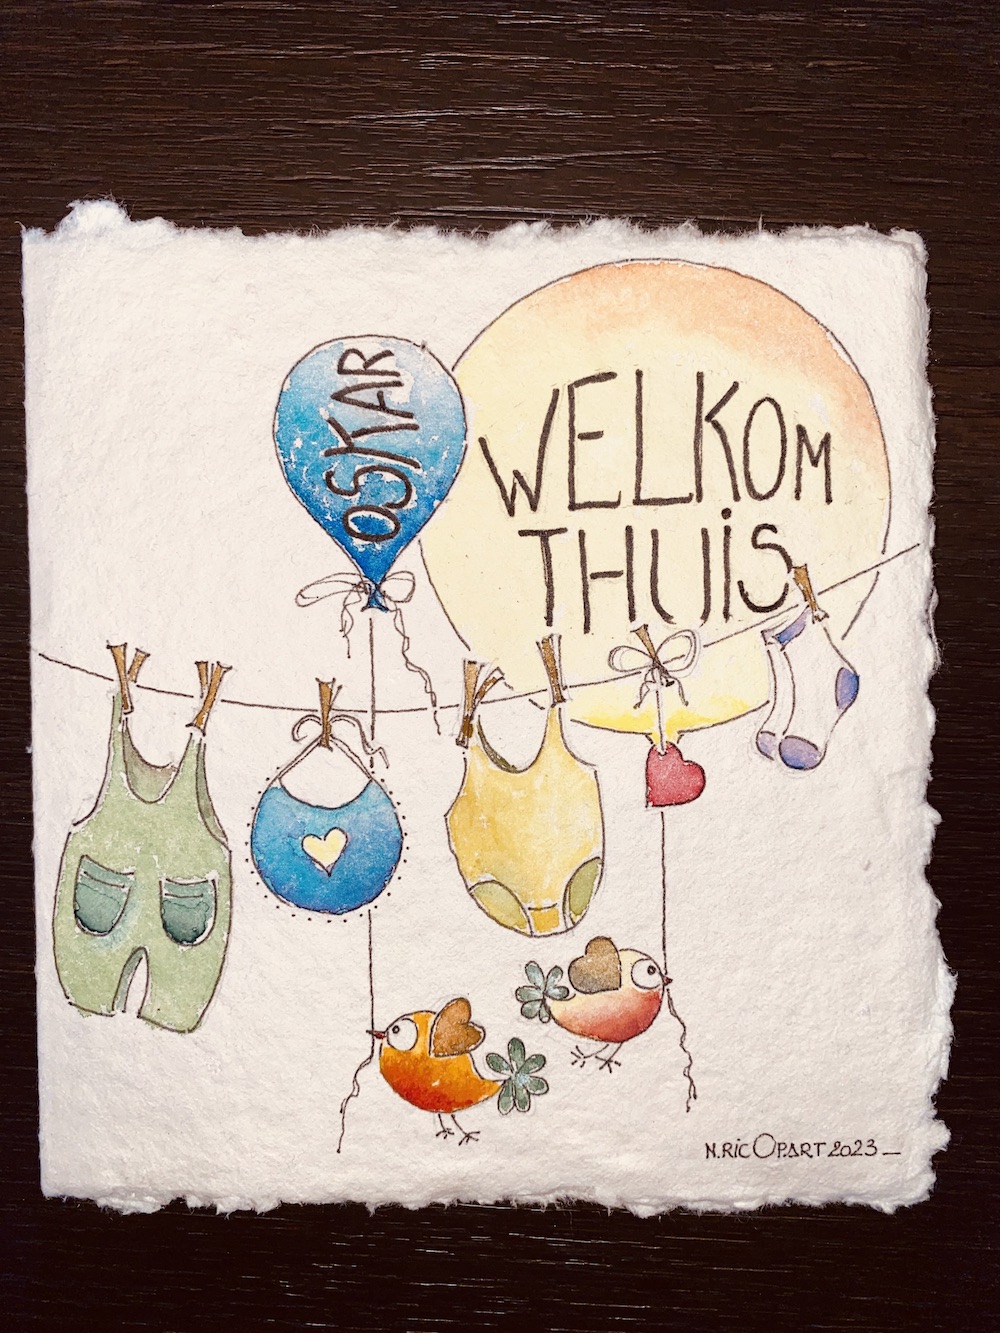 OSKAR
WELKOM
THUIS
N.RIC OPART 2023_